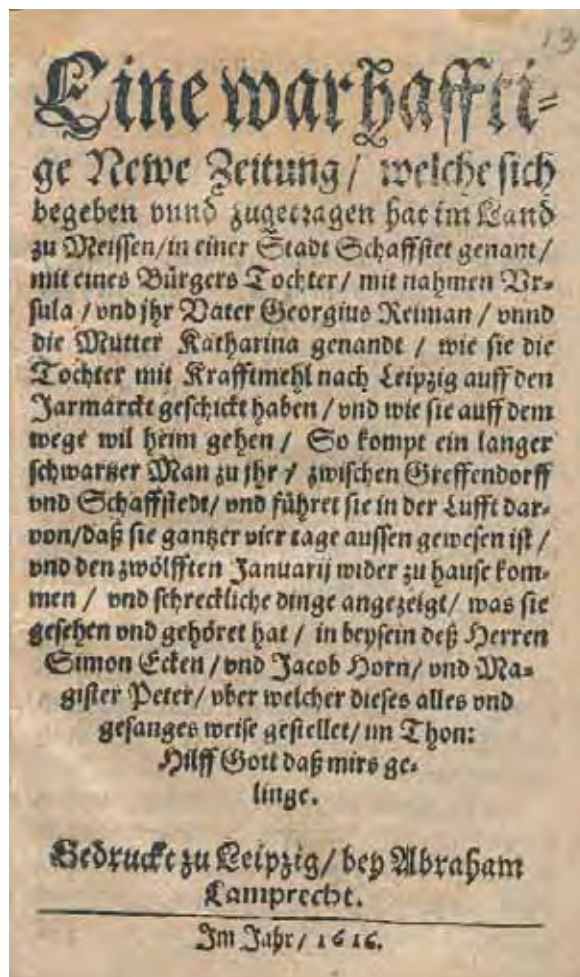 13
Eine warhaffti-
ge Newe Zeitung / welche sich
begeben vnnd zugetragen hat im Land
zu Meissen / in einer Stadt Schaffstet genant /
mit eines Bürgers Tochter / mit nahmen Vr-
sula / vnd jhr Vater Georgius Reiman / vnnd
die Mutter Katharina genandt / wie sie die
Tochter mit Krafftmehl nach Leipzig auff den
Jarmarckt geschickt haben / vnd wie sie auff dem
wege wil heim gehen / So kompt ein langer
schwartzer Man zu jhr / zwischen Greffendorff
vnd Schaffstedt / vnd führet sie in der Lufft dar-
von / daß sie gantzer vier tage aussen gewesen ist /
vnd den zwölfften Januarij wider zu hause kom-
men / vnd schreckliche dinge angezeigt / was sie
gesehen vnd gehöret hat / in beysein deß Herren
Simon Ecken / vnd Jacob Horn / vnd Ma-
gister Peter / vber welcher dieses alles vnd
gesanges weise gestellet / im Thon:
Hilff Gott daß mirs ge-
linge.
Gedruckt zu Leipzig / bey Abraham
Lamprecht.
Im Jahr / 1616.